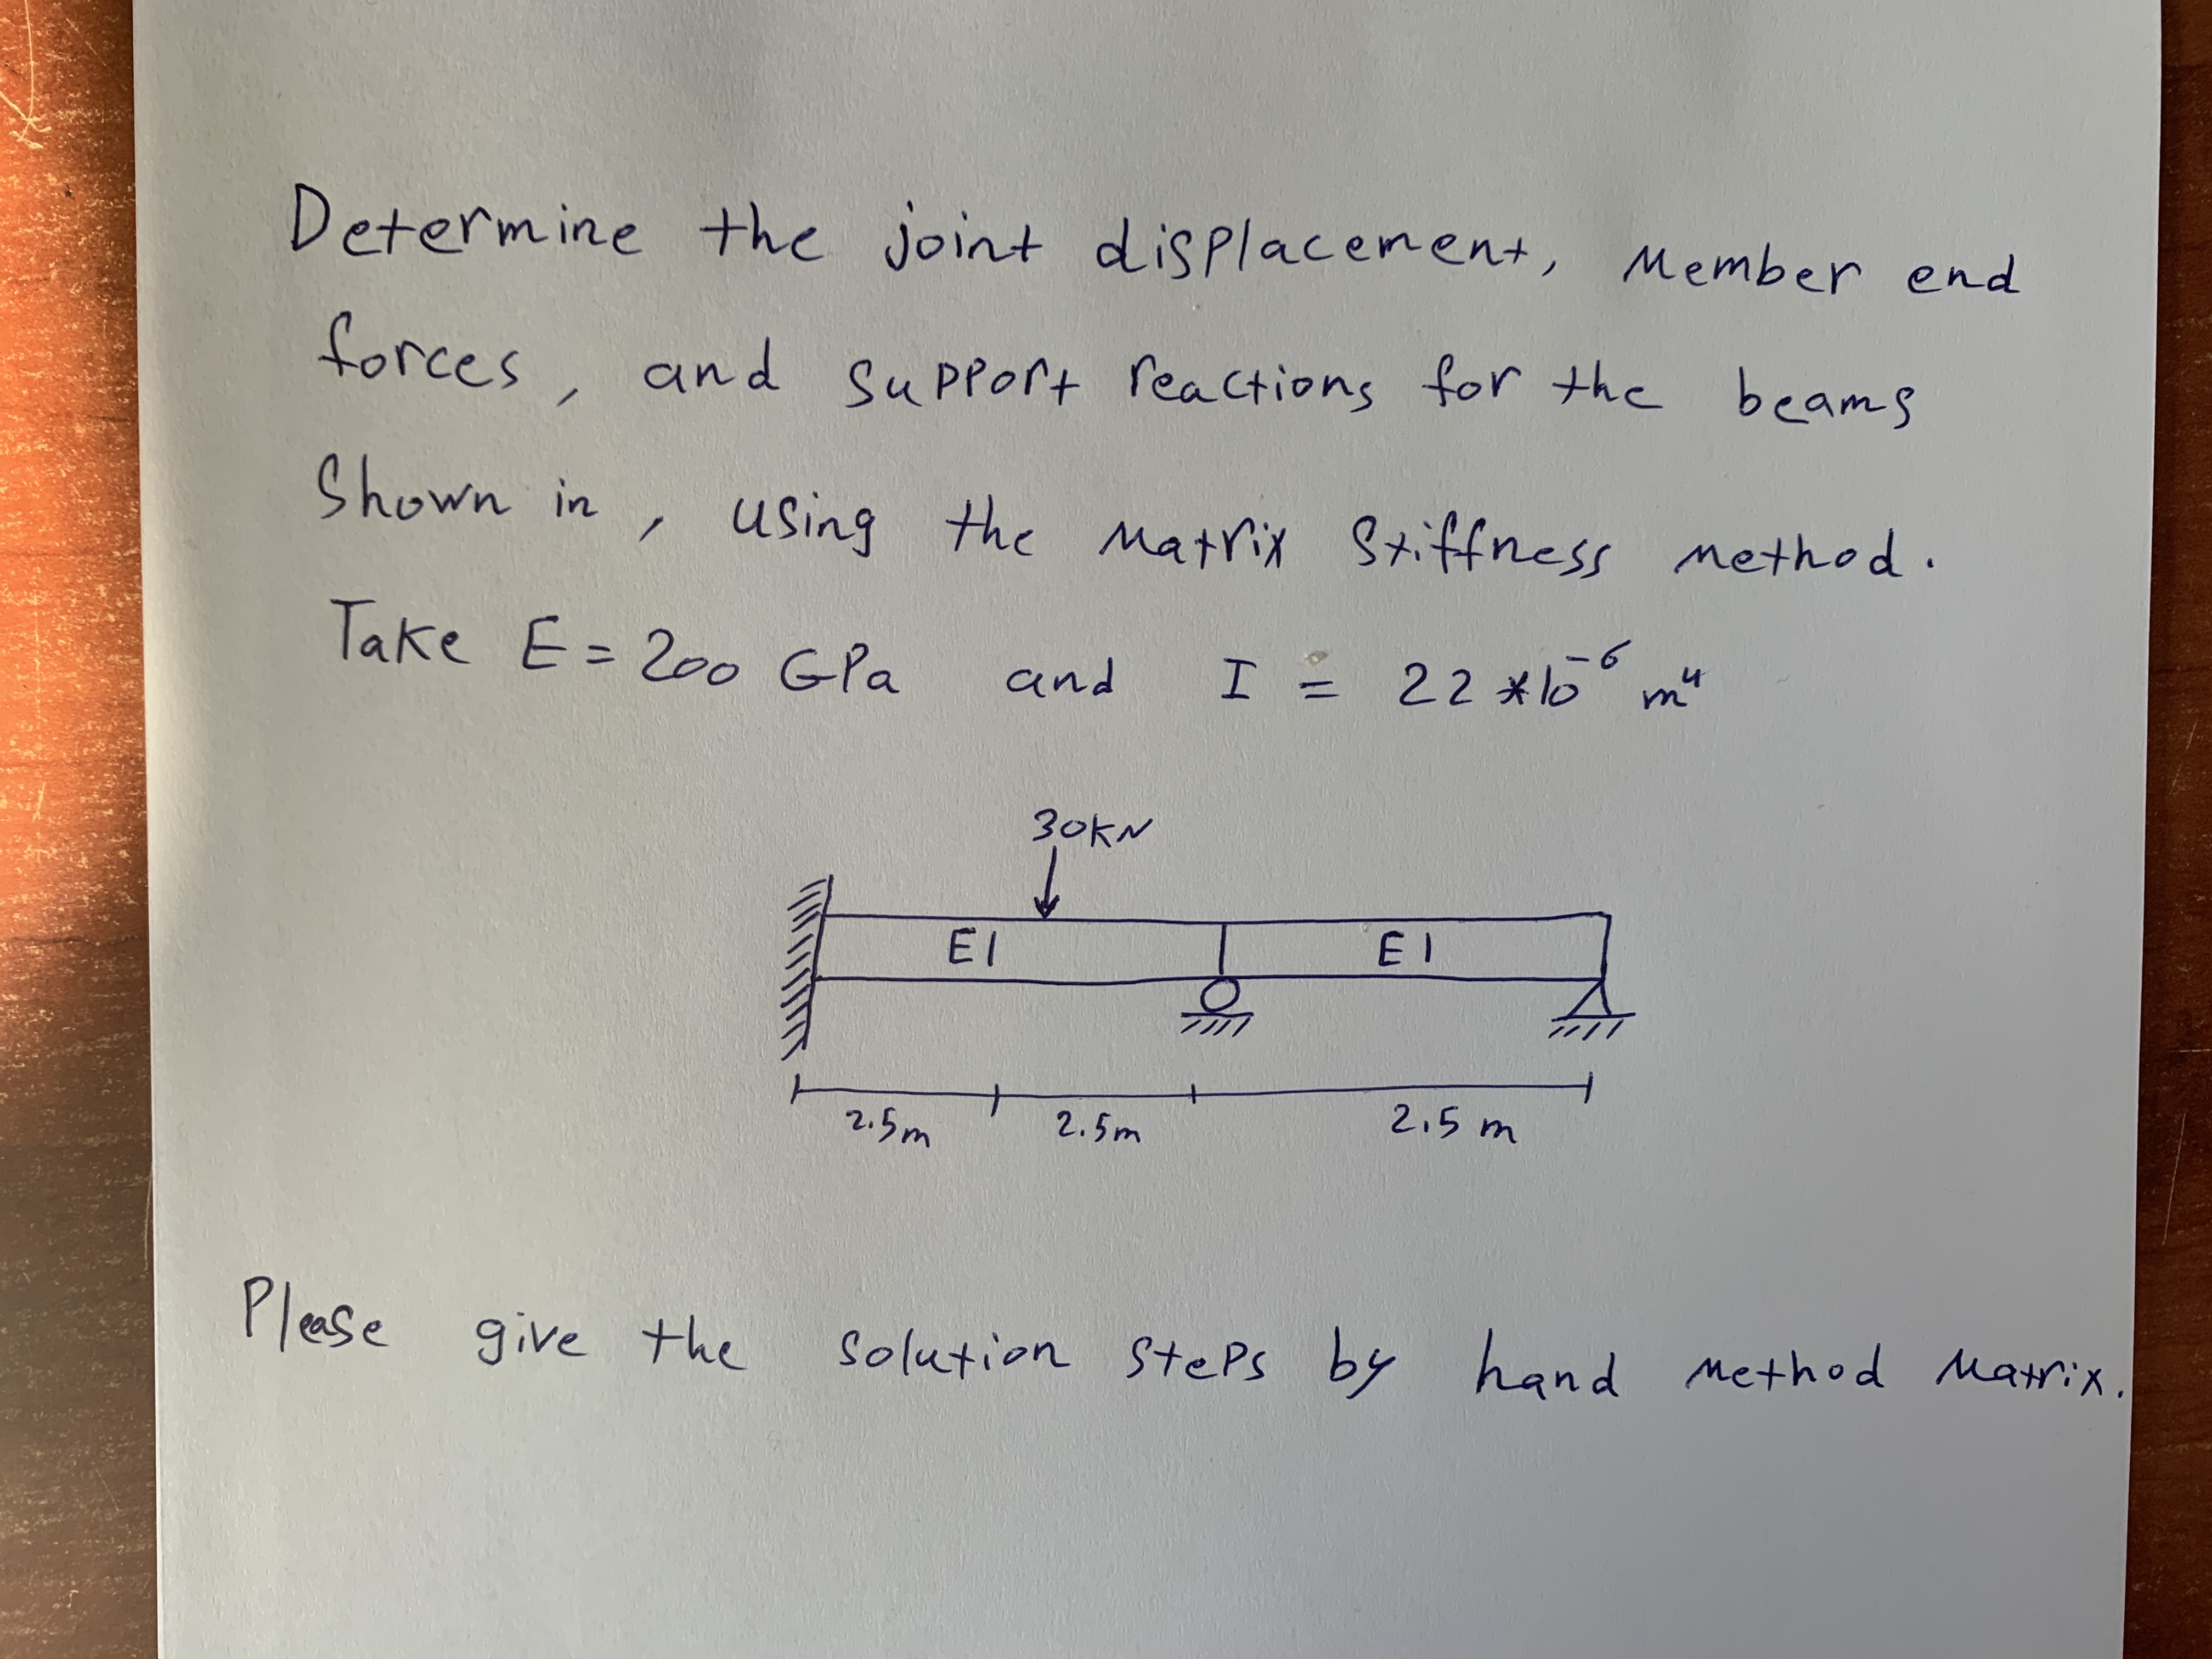 Determine the joint displacement, Member end
forces, and support reactions for the beams
Shown in, using the Matrix Stiffness method.
Take E = 200 GPa and I = 22 *10⁻⁶ m⁴
30KN
EI EI
2.5m 2.5m 2.5 m
Please give the solution steps by hand method Matrix.